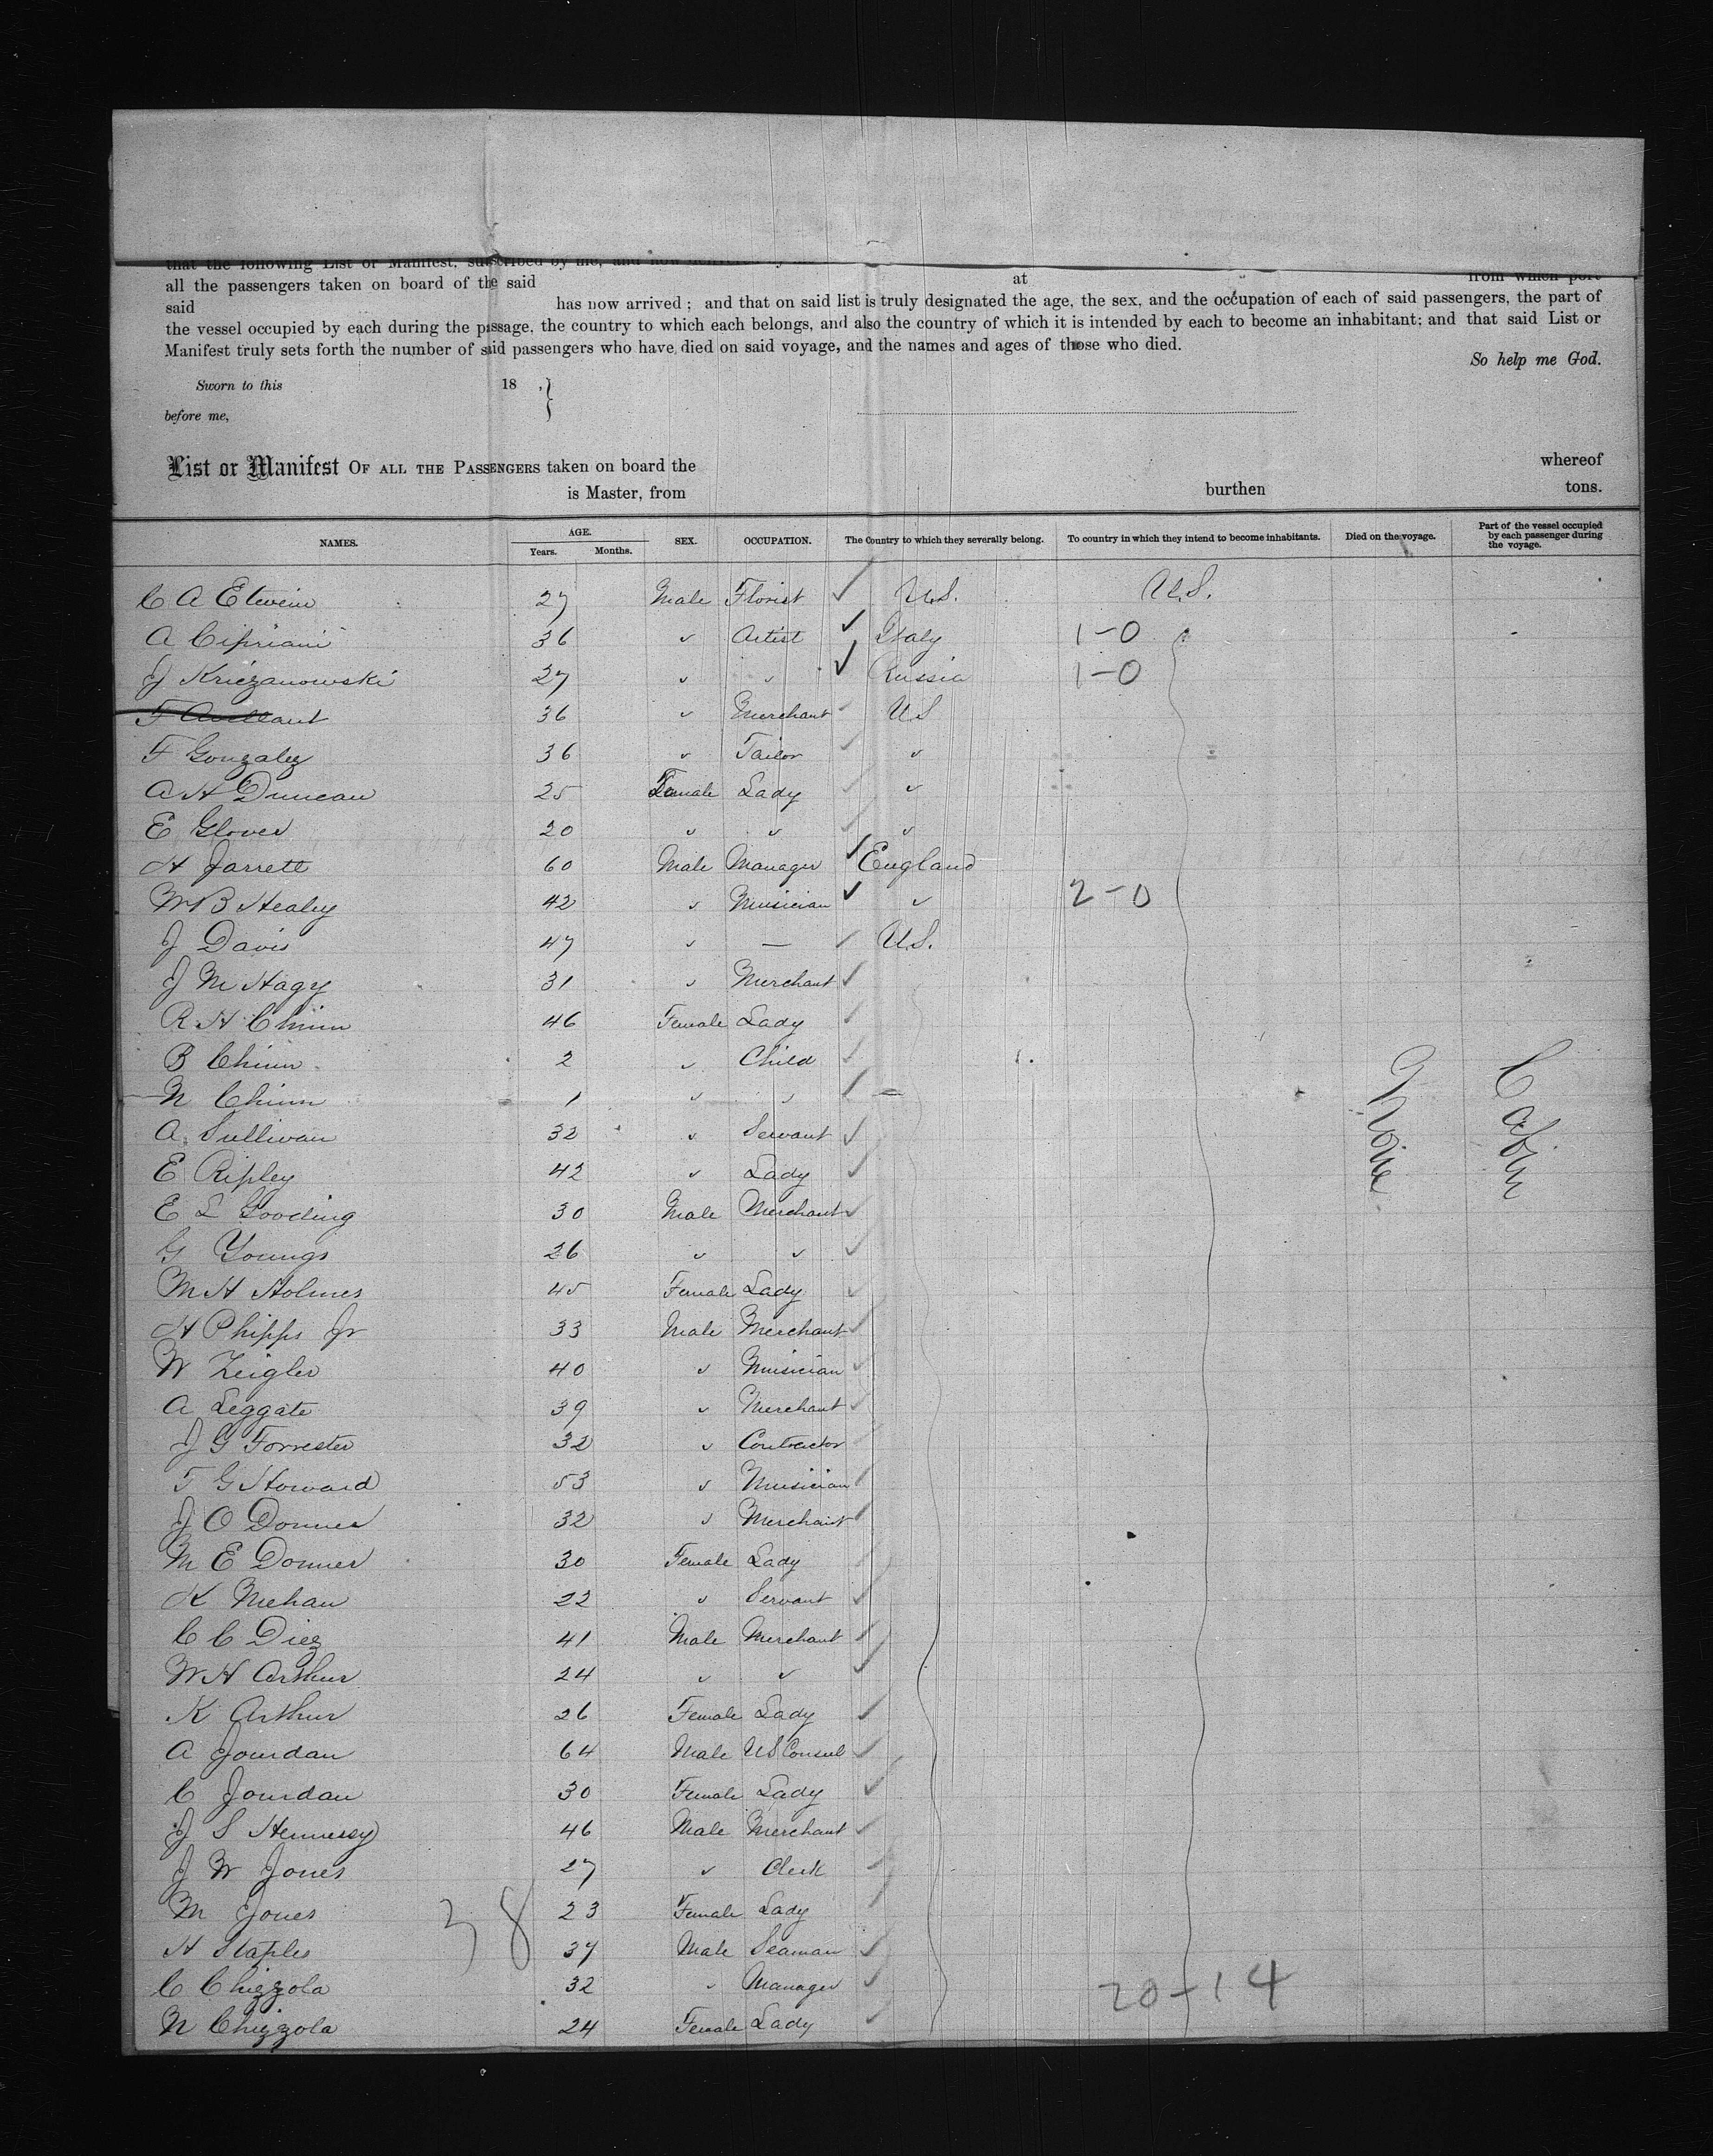 all the passengers taken on board of the said at from which port
said has now arrived; and that on said list is truly designated the age, the sex, and the occupation of each of said passengers, the part of
the vessel occupied by each during the passage, the country to which each belongs, and also the country of which it is intended by each to become an inhabitant; and that said List or
Manifest truly sets forth the number of said passengers who have died on said voyage, and the names and ages of those who died.
So help me God.
Sworn to this 18 .}
before me,
List or Manifest OF ALL THE PASSENGERS taken on board the whereof
is Master, from burthen tons.
NAMES. AGE. Years. Months. SEX. OCCUPATION. The Country to which they severally belong. To country in which they intend to become inhabitants. Died on the voyage. Part of the vessel occupied by each passenger during the voyage.
C A Etwein 27 Male Florist ✓ U.S. U.S.
A Cipriani 36 " Artist ✓ Italy 1-0
J Kriezanowski 27 " " ✓ Russia 1-0
F 36 " Merchant ✓ US
F Gonzalez 36 " Tailor ✓ "
A H Duncan 25 Female Lady ✓ "
E Glover 20 " " ✓ "
H Jarrett 60 Male Manager ✓ England
W B Healey 42 " Musician ✓ " 2-0
J Davis 47 " — ✓ U.S.
J M Hagy 31 " Merchant ✓
R H Chinn 46 Female Lady ✓
B Chinn 2 " Child ✓
N Chinn 1 " " ✓
A Sullivan 32 " Servant ✓
E Ripley 42 " Lady ✓
E L Gooding 30 Male Merchant ✓
G Youngs 26 " " ✓
M H Holmes 45 Female Lady ✓
H Phipps Jr 33 Male Merchant ✓
W Zeigler 40 " Musician ✓
A Leggate 39 " Merchant ✓
J G Forrester 32 " Contractor ✓
T G Howard 53 " Musician ✓
J O Donner 32 " Merchant ✓
M E Donner 30 Female Lady ✓
K Mehan 22 " Servant ✓
C C Diez 41 Male Merchant ✓
W H Arthur 24 " " ✓
K Arthur 26 Female Lady ✓
A Jourdan 64 Male US Consul ✓
C Jourdan 30 Female Lady ✓
J S Hennessy 46 Male Merchant ✓
J W Jones 27 " Clerk ✓
M Jones 23 Female Lady ✓
H Staples 37 Male Seaman ✓
C Chizzola 32 " Manager ✓
N Chizzola 24 Female Lady ✓
None
Cabin
38
20-14